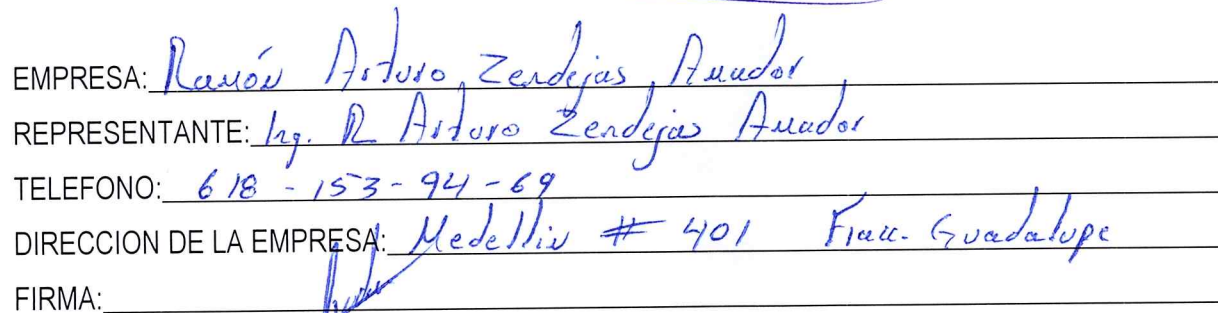 EMPRESA: Ramón Arturo Zendejas Amador
REPRESENTANTE: Ing. R Arturo Zendejas Amador
TELEFONO: 618 - 153 - 94 - 69
DIRECCION DE LA EMPRESA: Medellin # 401 Fracc. Guadalupe
FIRMA: